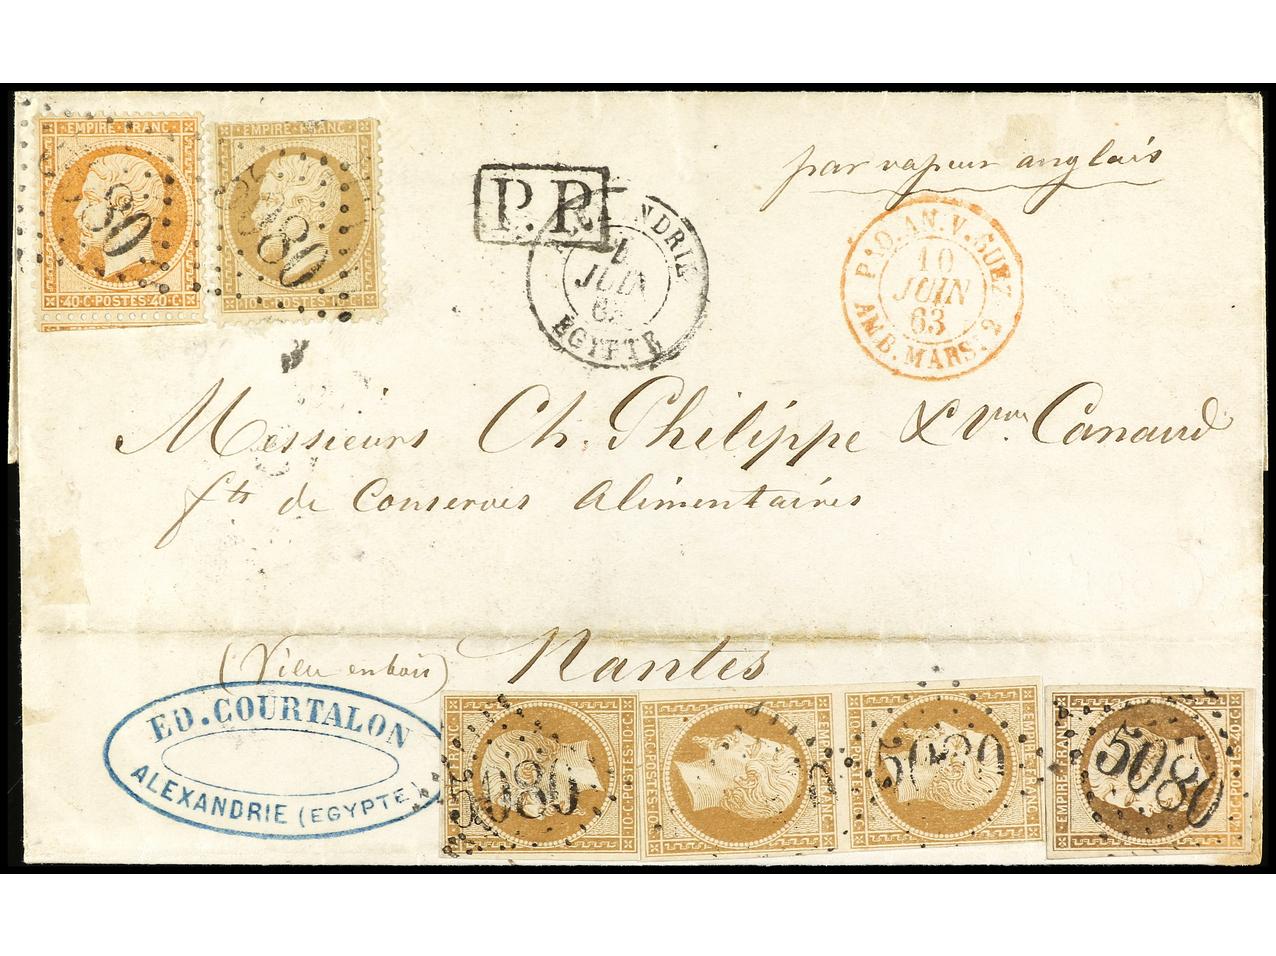 EMPIRE FRANC
40·C·POSTES·40·C
EMPIRE FRANC
POSTES 10·C
5080
P.P.
ALEXANDRIE
JUIN
63
EGYPTE
par vapeur anglais
PAQ. AN. V. SUEZ
10
JUIN
63
AMB. MARS. 2
Messieurs Ch. Philippe & Vve Canaud
fts de Conserves Alimentaires
Nantes
ED. COURTALON
ALEXANDRIE (EGYPTE)
10·C·POSTES·10·C
5080
10·C·POSTES·10·C
EMPIRE FRANC
10·C·POSTES·10·C
EMPIRE·FRANC
5080
EMPIRE FRANC
40·C·POSTES·40·C
5080